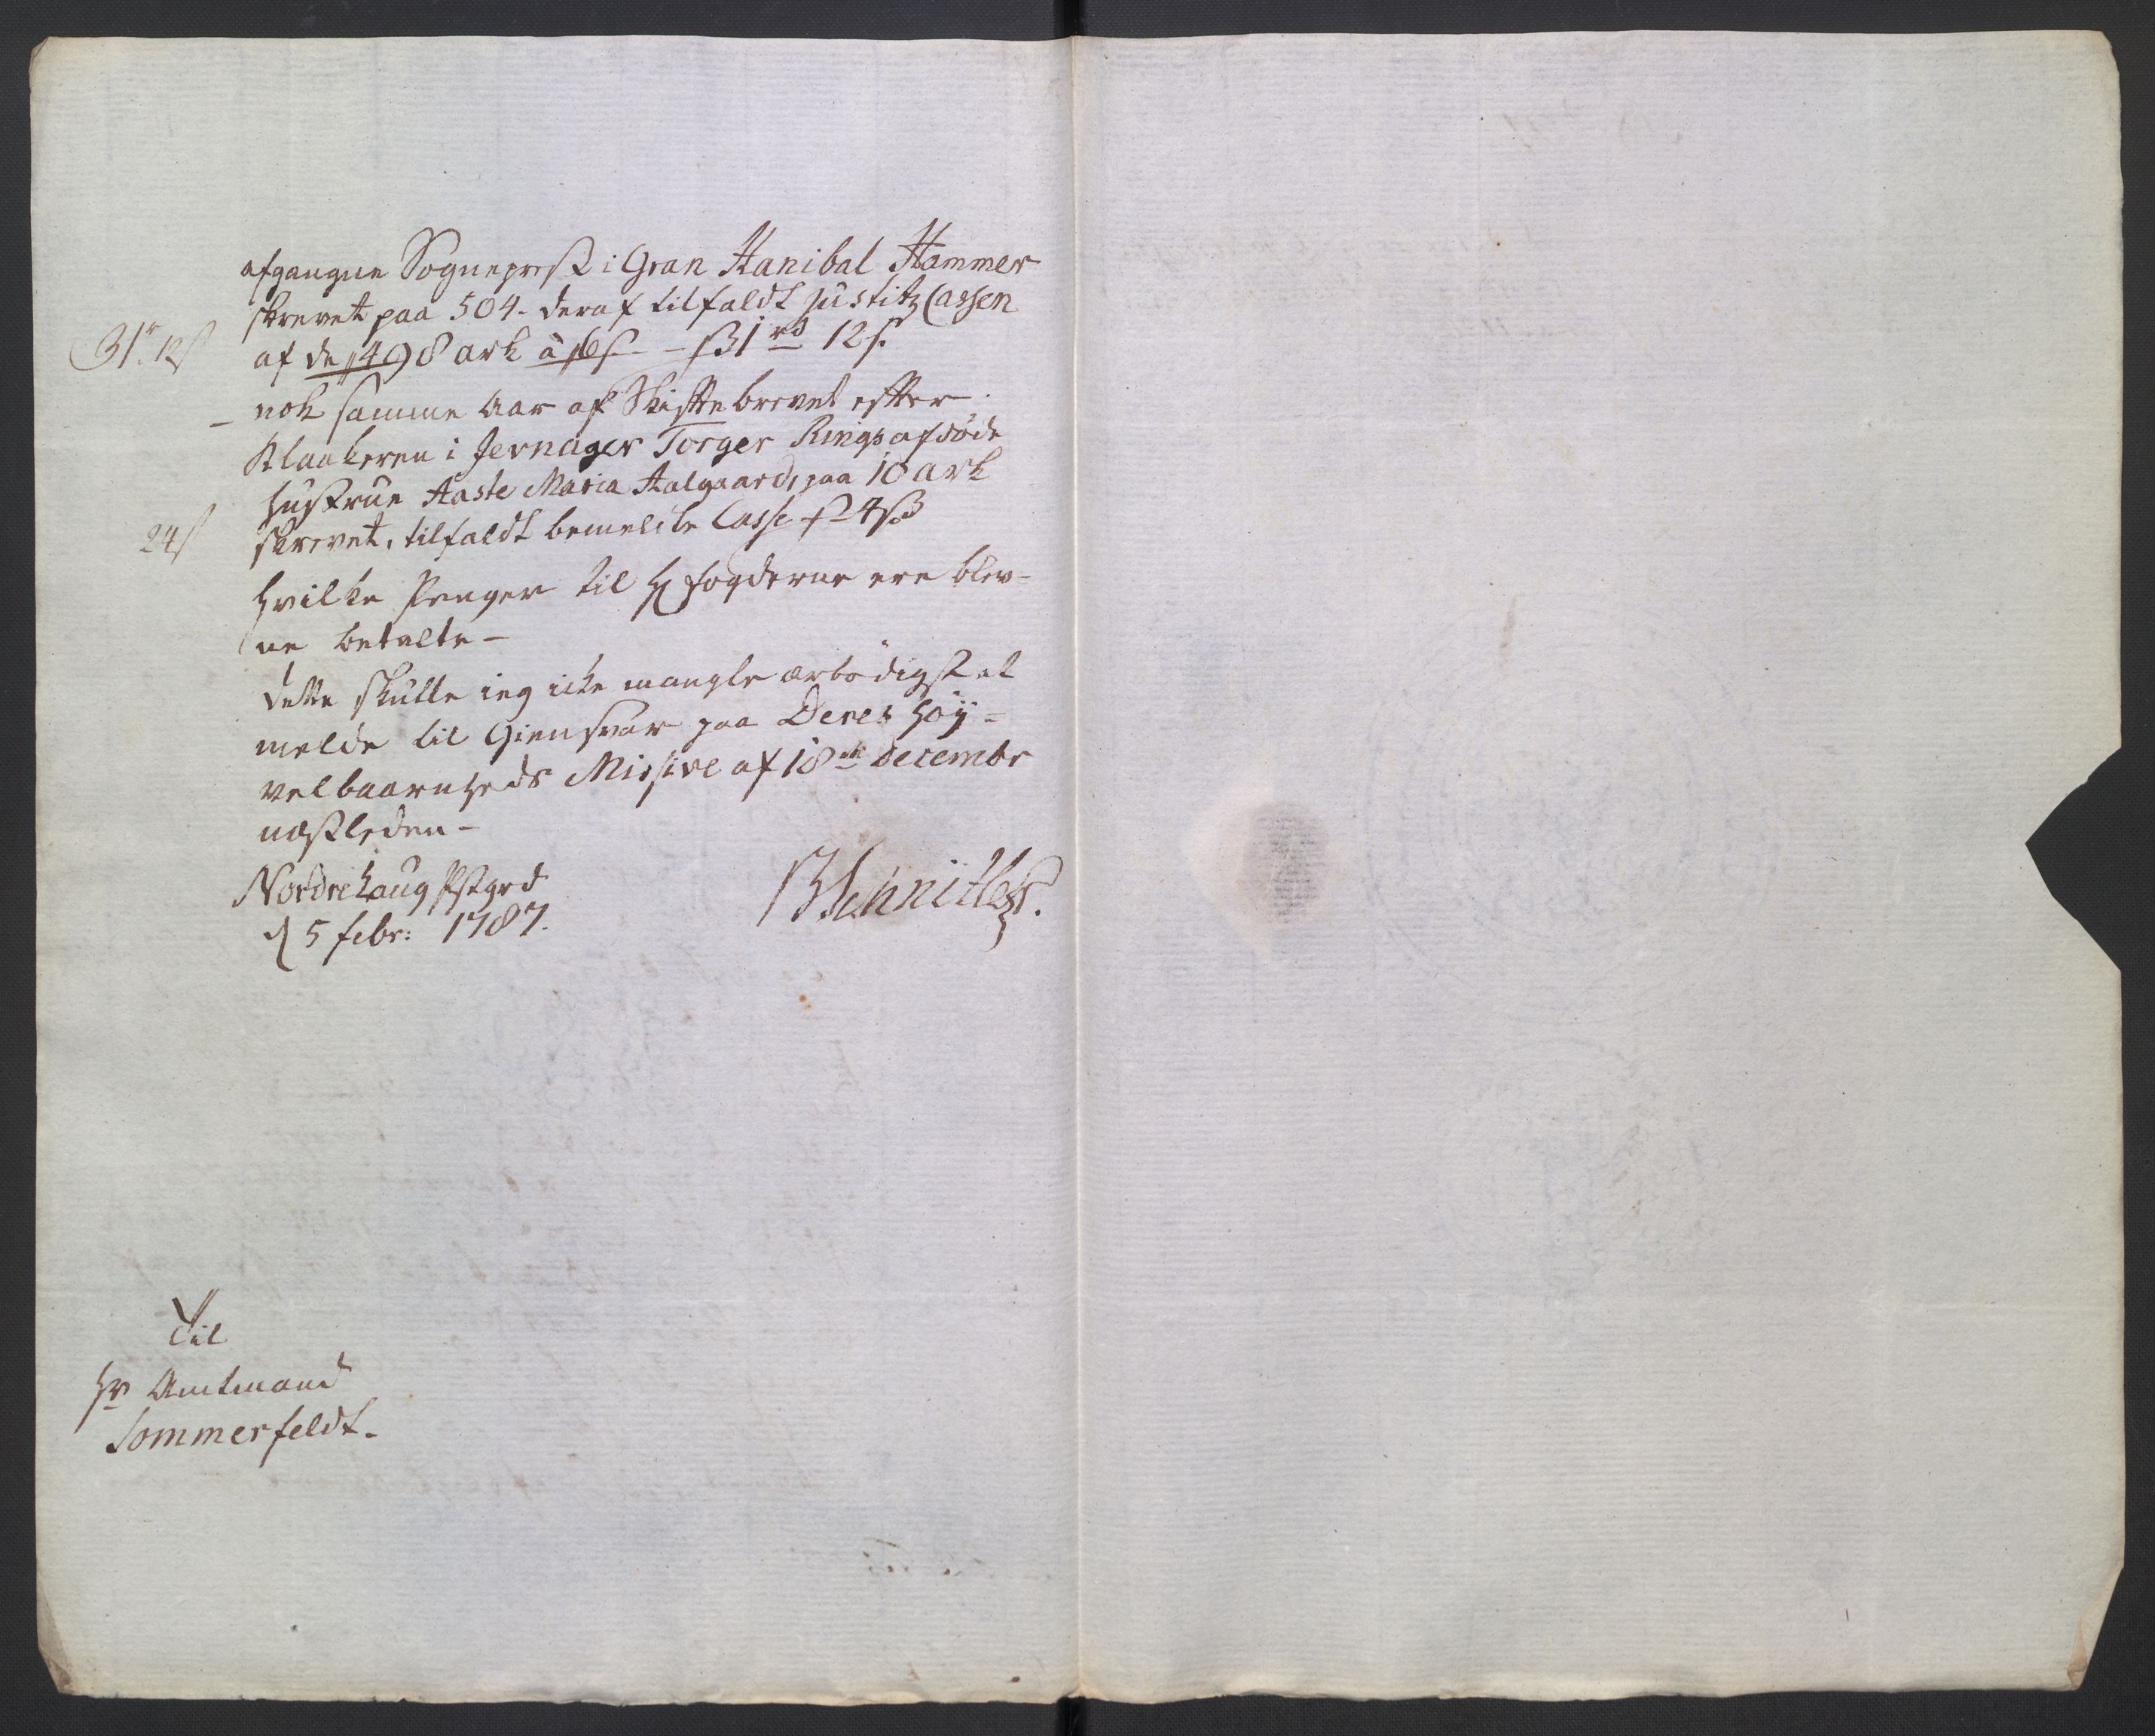 afgangne Sogneprest i Gran Hanibal Hammer
skrevet paa 504. deraf tilfaldt Justitz Cassen
31r. 12s af de 498 ark à 6s - 31 rd 12s.
nok samme Aar af Skiftebrevet efter
Klokkeren i Jevnager Torger Rings afdöde
Hustrue Aaste Maria Aalgaard, paa 10 ark
24s skrevet, tilfaldt bemelte Casse
hvilke Penger til H Fogderne ere blev-
ne betalte -
dette skulle ieg icke mangle ærbödigst at
melde til Giensvar paa Deres Höÿ-
velbaarnheds Missive af 18de decembr
næstleden -
Nordrehaug Pstgrd
d 5 febr: 1787.
BSchnitler.
Til
Hr Amtmand
Sommerfeldt.